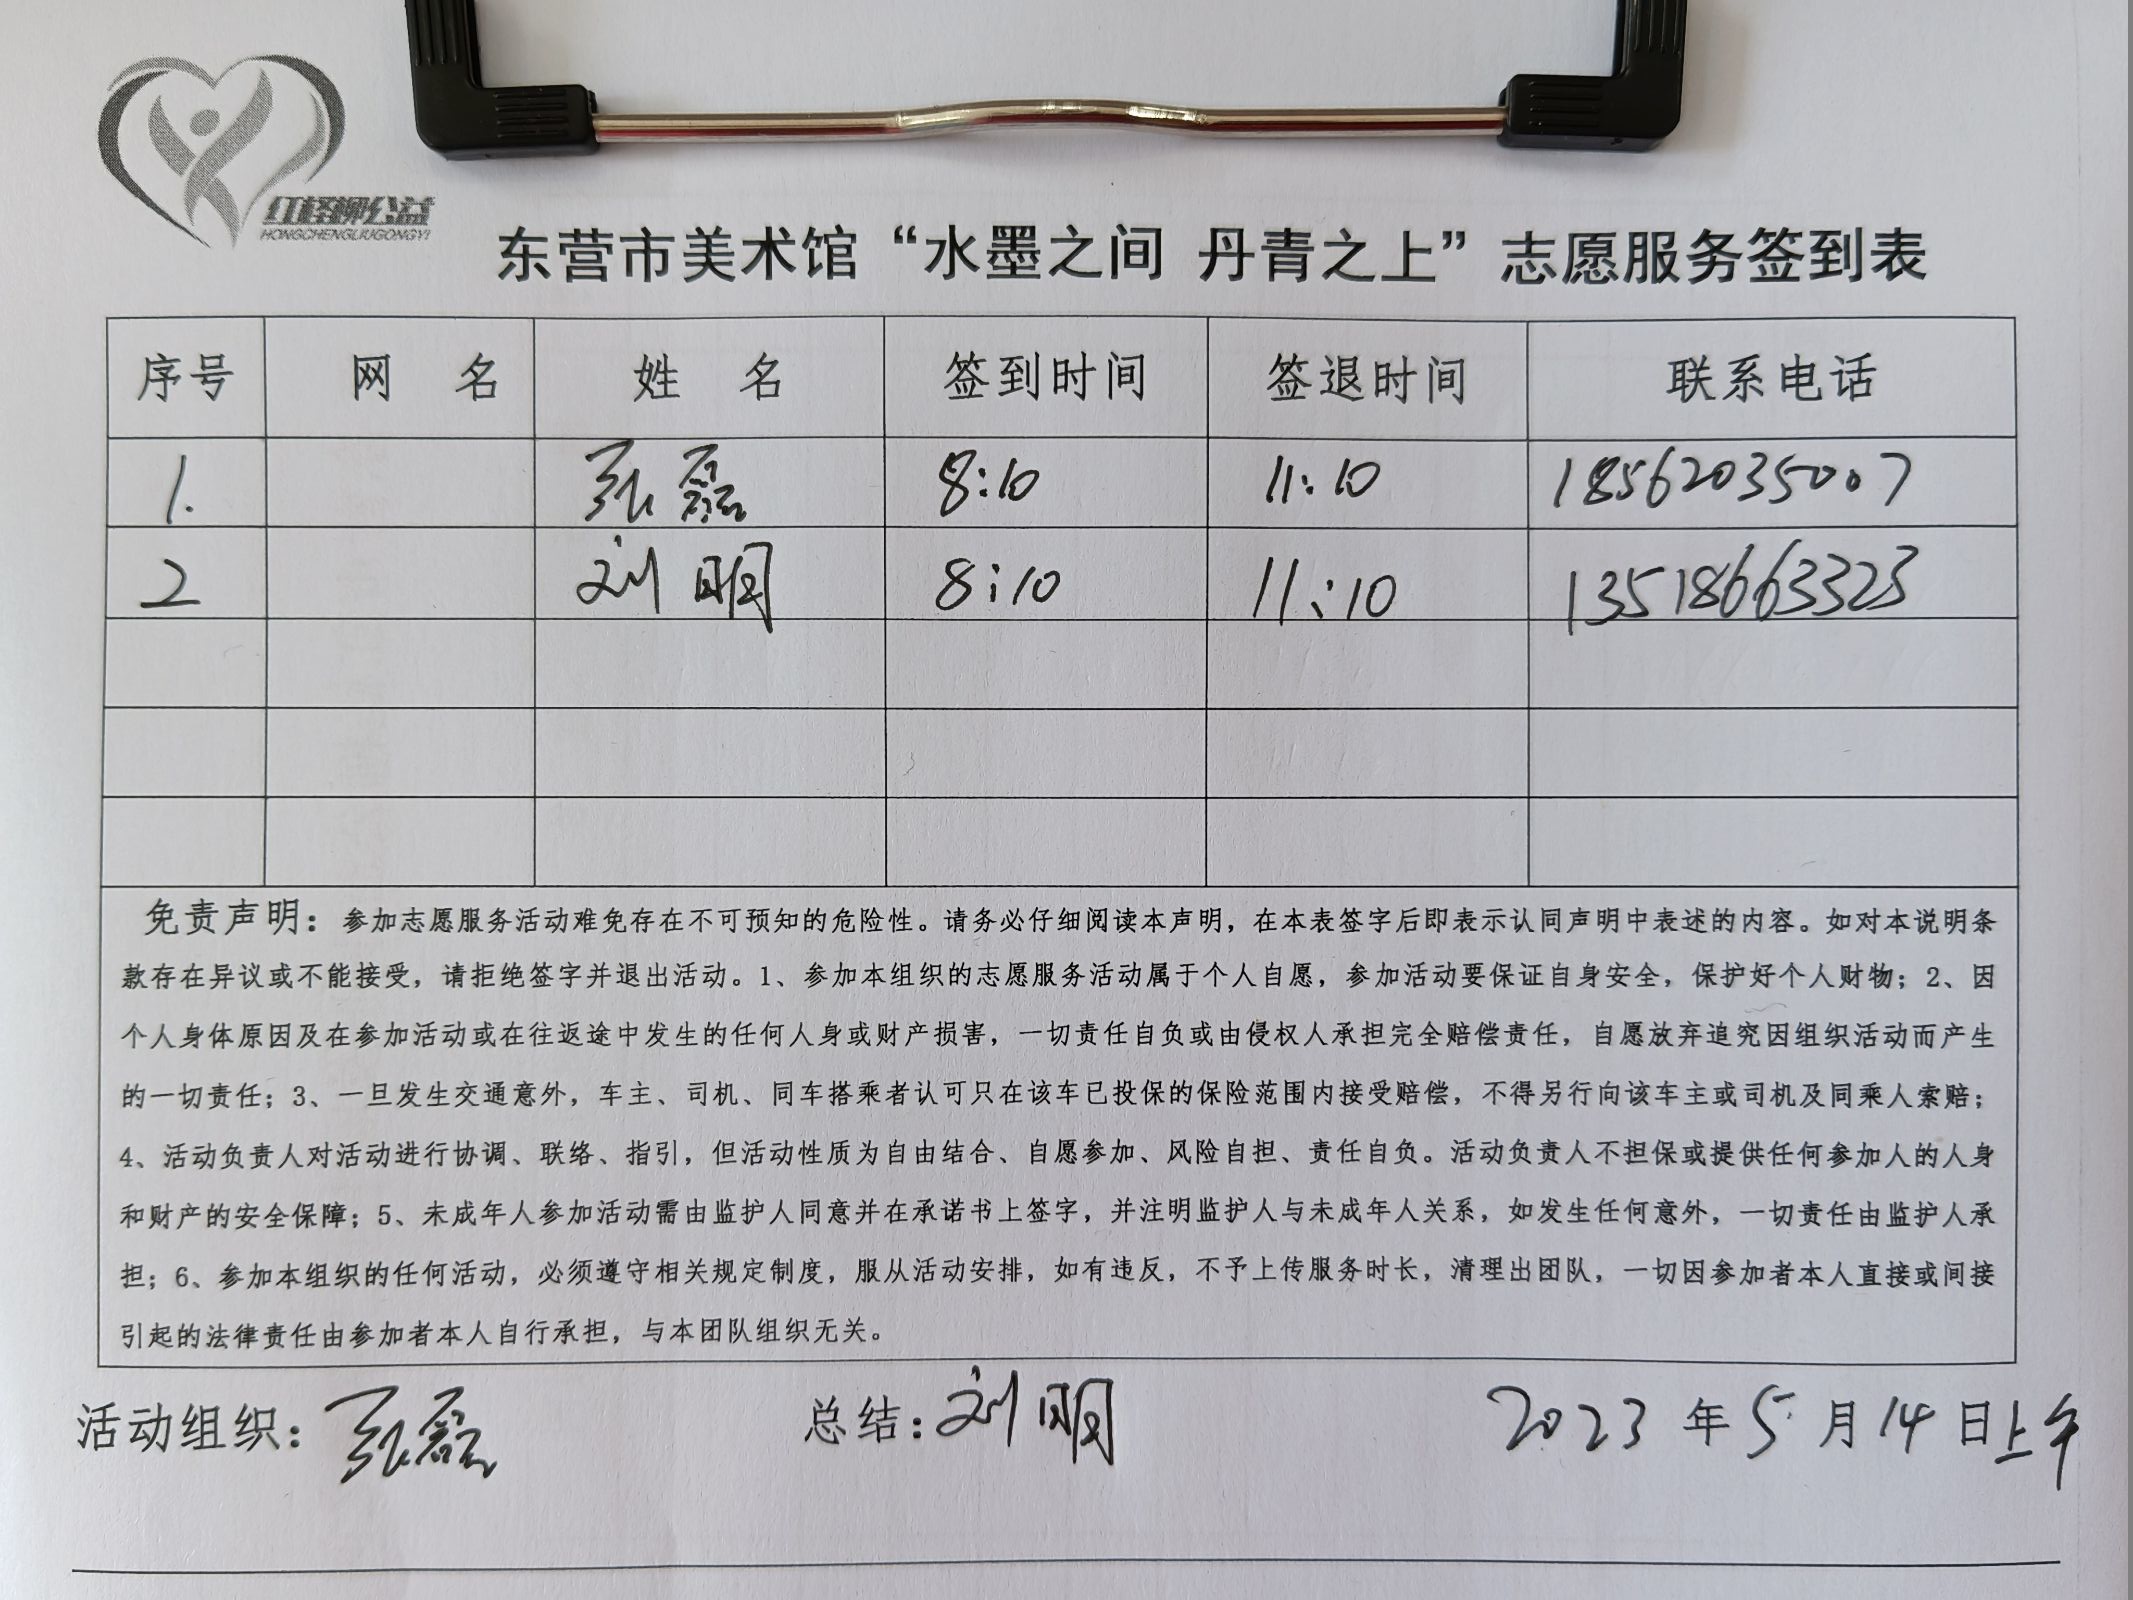 红柽柳公益
HONGCHENGLIUGONGYI
东营市美术馆“水墨之间 丹青之上”志愿服务签到表
序号 网 名 姓 名 签到时间 签退时间 联系电话
1. 张磊 8:10 11:10 18562035007
2 刘明 8:10 11:10 13518663323
免责声明：参加志愿服务活动难免存在不可预知的危险性。请务必仔细阅读本声明，在本表签字后即表示认同声明中表述的内容。如对本说明条
款存在异议或不能接受，请拒绝签字并退出活动。1、参加本组织的志愿服务活动属于个人自愿，参加活动要保证自身安全，保护好个人财物；2、因
个人身体原因及在参加活动或在往返途中发生的任何人身或财产损害，一切责任自负或由侵权人承担完全赔偿责任，自愿放弃追究因组织活动而产生
的一切责任；3、一旦发生交通意外，车主、司机、同车搭乘者认可只在该车已投保的保险范围内接受赔偿，不得另行向该车主或司机及同乘人索赔；
4、活动负责人对活动进行协调、联络、指引，但活动性质为自由结合、自愿参加、风险自担、责任自负。活动负责人不担保或提供任何参加人的人身
和财产的安全保障；5、未成年人参加活动需由监护人同意并在承诺书上签字，并注明监护人与未成年人关系，如发生任何意外，一切责任由监护人承
担；6、参加本组织的任何活动，必须遵守相关规定制度，服从活动安排，如有违反，不予上传服务时长，清理出团队，一切因参加者本人直接或间接
引起的法律责任由参加者本人自行承担，与本团队组织无关。
活动组织：张磊 总结：刘明 2023年5月14日上午